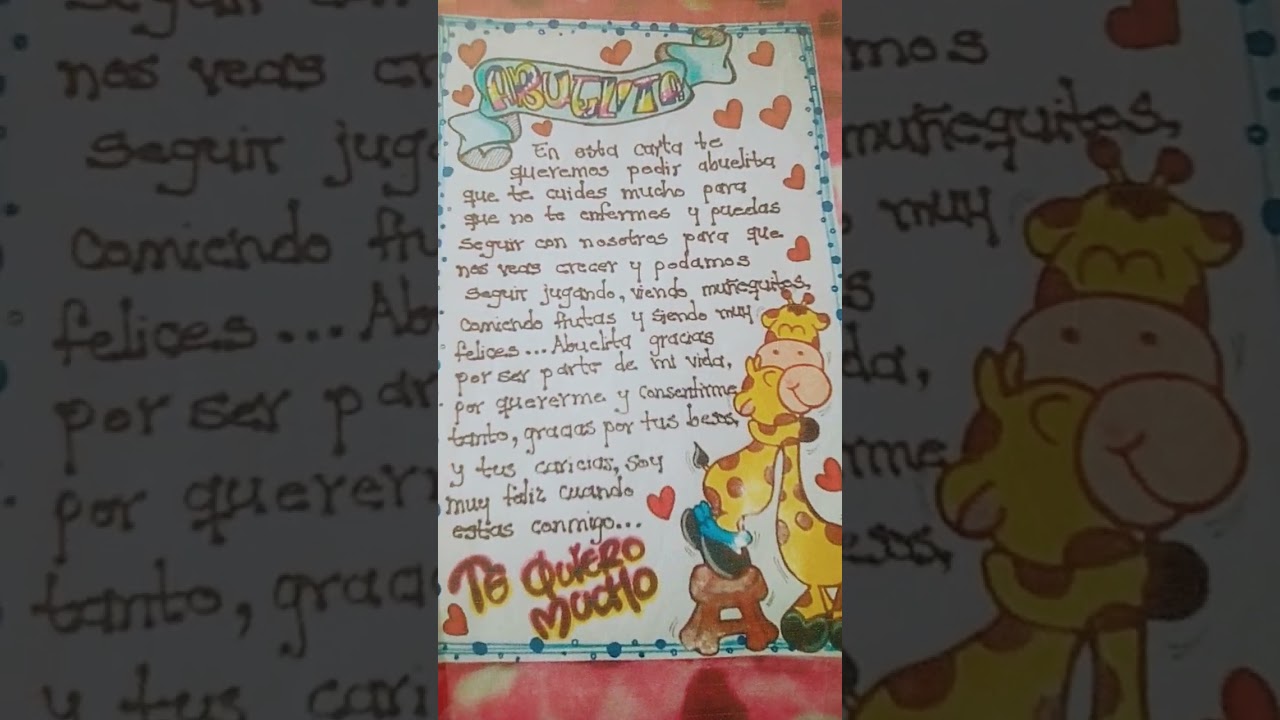 ABUELITA
En esta carta te
queremos pedir abuelita
que te cuides mucho para
que no te enfermes y puedas
seguir con nosotros para que
nos veas crecer y podamos
seguir jugando, viendo muñequitos,
comiendo frutas y siendo muy
felices... Abuelita gracias
por ser parte de mi vida,
por quererme y consentirme
tanto, gracias por tus besos,
y tus caricias, soy
muy feliz cuando
estas conmigo...
TE QUIERO
MUCHO